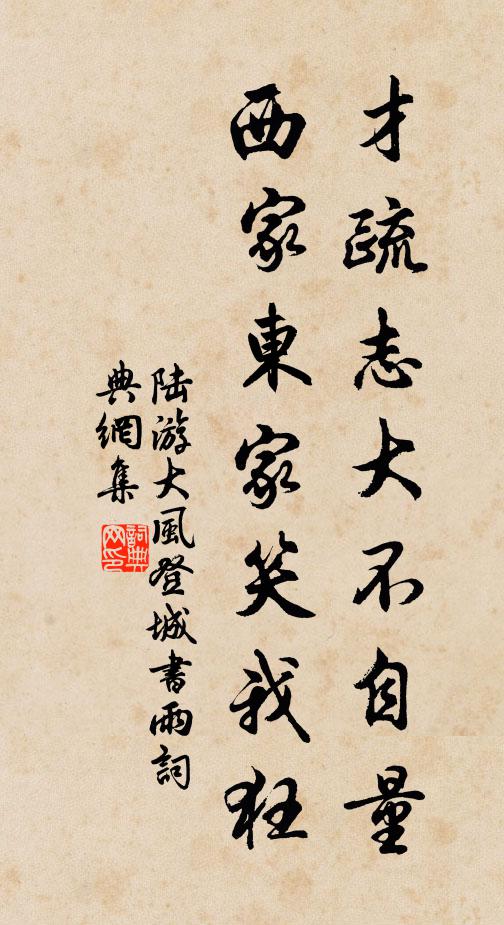 才疏志大不自量
西家東家笑我狂
陆游大風登城書雨詞
典網集
詞典网印